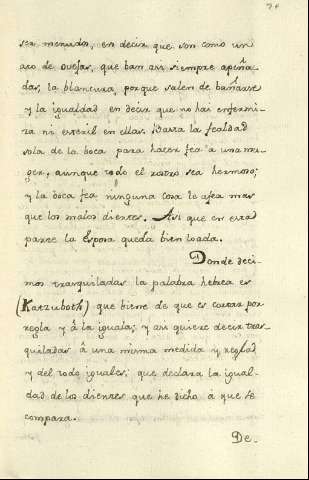 ser menudos, en decir que son como un
ato de ovejas, que van asi siempre apiña-
das, la blancura, porque salen de bañarse
y la igualdad en decir que no hai enfermi-
za ni esteril en ellas. Basta la fealdad
sola de la boca para hacer fea a una mu-
ger, aunque todo el rostro sea hermoso;
y la boca fea ninguna cosa le afea mas
que los malos dientes. Asi que en esta
parte la Esposa queda bien loada.
Donde deci-
mos trasquiladas la palabra hebrea es
(Katzuboth) que biene de que es cortar por
regla y á la iguala; y asi quiere decir tras-
quiladas á una misma medida y reglad
y del todo iguales; que declara la igual-
dad de los dientes que he dicho á que se
compara.
De-